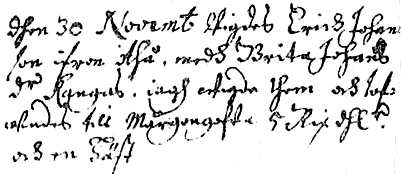 dhen 30 Novemb wigdes Erich Johan
son ifron Åhå, medh Brita Johans
dr Kangas. iagh wigde them och lof-
wades till Morgongofva 5 Rix dhlr
och en Häst